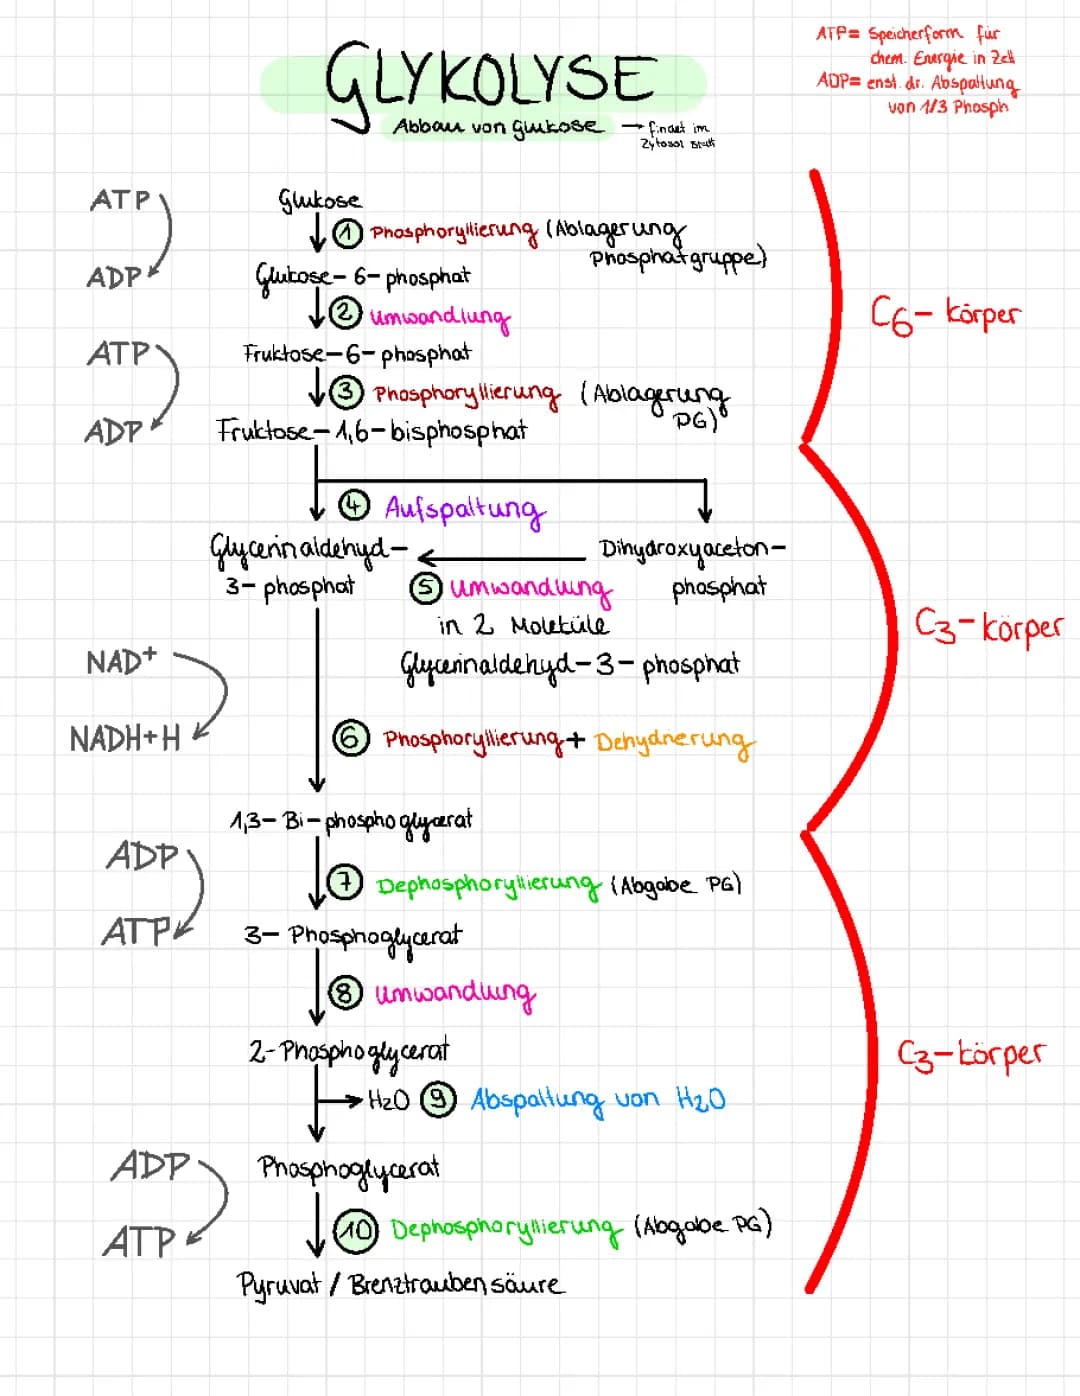 ATP= Speicherform für
chem. Energie in Zell
ADP= enst. dr. Abspaltung
von 1/3 Phosph
GLYKOLYSE
Abbau von Glukose → findet im
Zytosol statt
ATP
Glukose
① Phosphoryllierung (Ablagerung
Phosphatgruppe)
ADP
Glukose-6-phosphat
② Umwandlung
C6-körper
ATP
Fruktose-6-phosphat
③ Phosphoryllierung (Ablagerung
PG)
ADP
Fruktose-1,6-bisphosphat
④ Aufspaltung
Glycerinaldehyd-
3-phosphat
Dihydroxyaceton-
phosphat
⑤ Umwandlung
in 2 Moleküle
Glycerinaldehyd-3-phosphat
C3-körper
NAD+
NADH+H
⑥ Phosphoryllierung + Dehydrierung
1,3-Bi-phosphoglycerat
ADP
⑦ Dephosphoryllierung (Abgabe PG)
ATP
3-Phosphoglycerat
⑧ Umwandlung
2-Phosphoglycerat
C3-körper
H2O ⑨ Abspaltung von H2O
ADP
Phosphoglycerat
⑩ Dephosphoryllierung (Abgabe PG)
ATP
Pyruvat / Brenztraubensäure